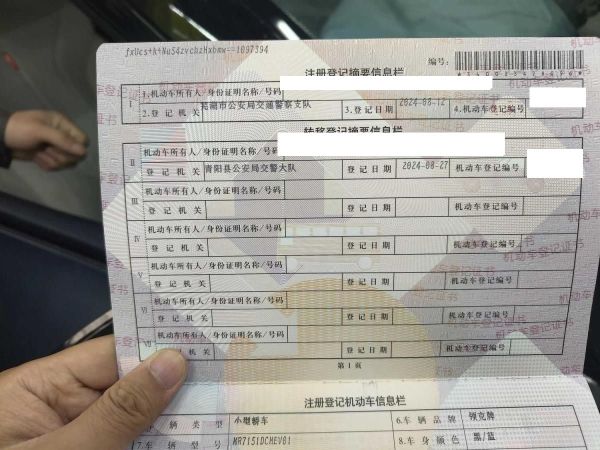 fxUcs+k+NuS4zvcbzHxbmw==1097394
编号:
注册登记摘要信息栏
I 1.机动车所有人/身份证明名称/号码
2.登记机关 芜湖市公安局交通警察支队 3.登记日期 2024-08-12 4.机动车登记编号
转移登记摘要信息栏
II 机动车所有人/身份证明名称/号码
登记机关 青阳县公安局交警大队 登记日期 2024-08-27 机动车登记编号
III 机动车所有人/身份证明名称/号码
登记机关 登记日期 机动车登记编号
IV 机动车所有人/身份证明名称/号码
登记机关 登记日期 机动车登记编号
V 机动车所有人/身份证明名称/号码
登记机关 登记日期 机动车登记编号
VI 机动车所有人/身份证明名称/号码
登记机关 登记日期 机动车登记编号
VII 机动车所有人/身份证明名称/号码
机关 登记日期 机动车登记编号
第1页
注册登记机动车信息栏
车辆类型 小型轿车 6.车辆品牌 领克牌
7.车辆型号 MR7151DCHEV01 8.车身颜色 黑/蓝